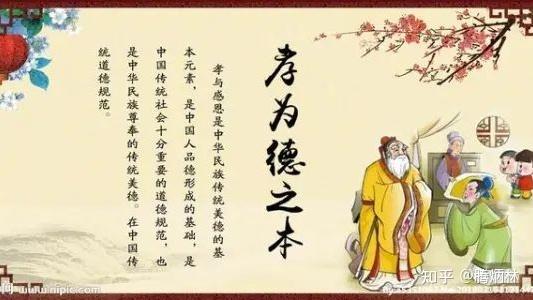 孝为德之本
孝与感恩是中华民族传统美德的基
本元素，是中国人品德形成的基础，是
中国传统社会十分重要的道德规范，也
是中华民族尊奉的传统美德。在中国传
统道德规范。
网 www.nipic.com
知乎 @腾炳林